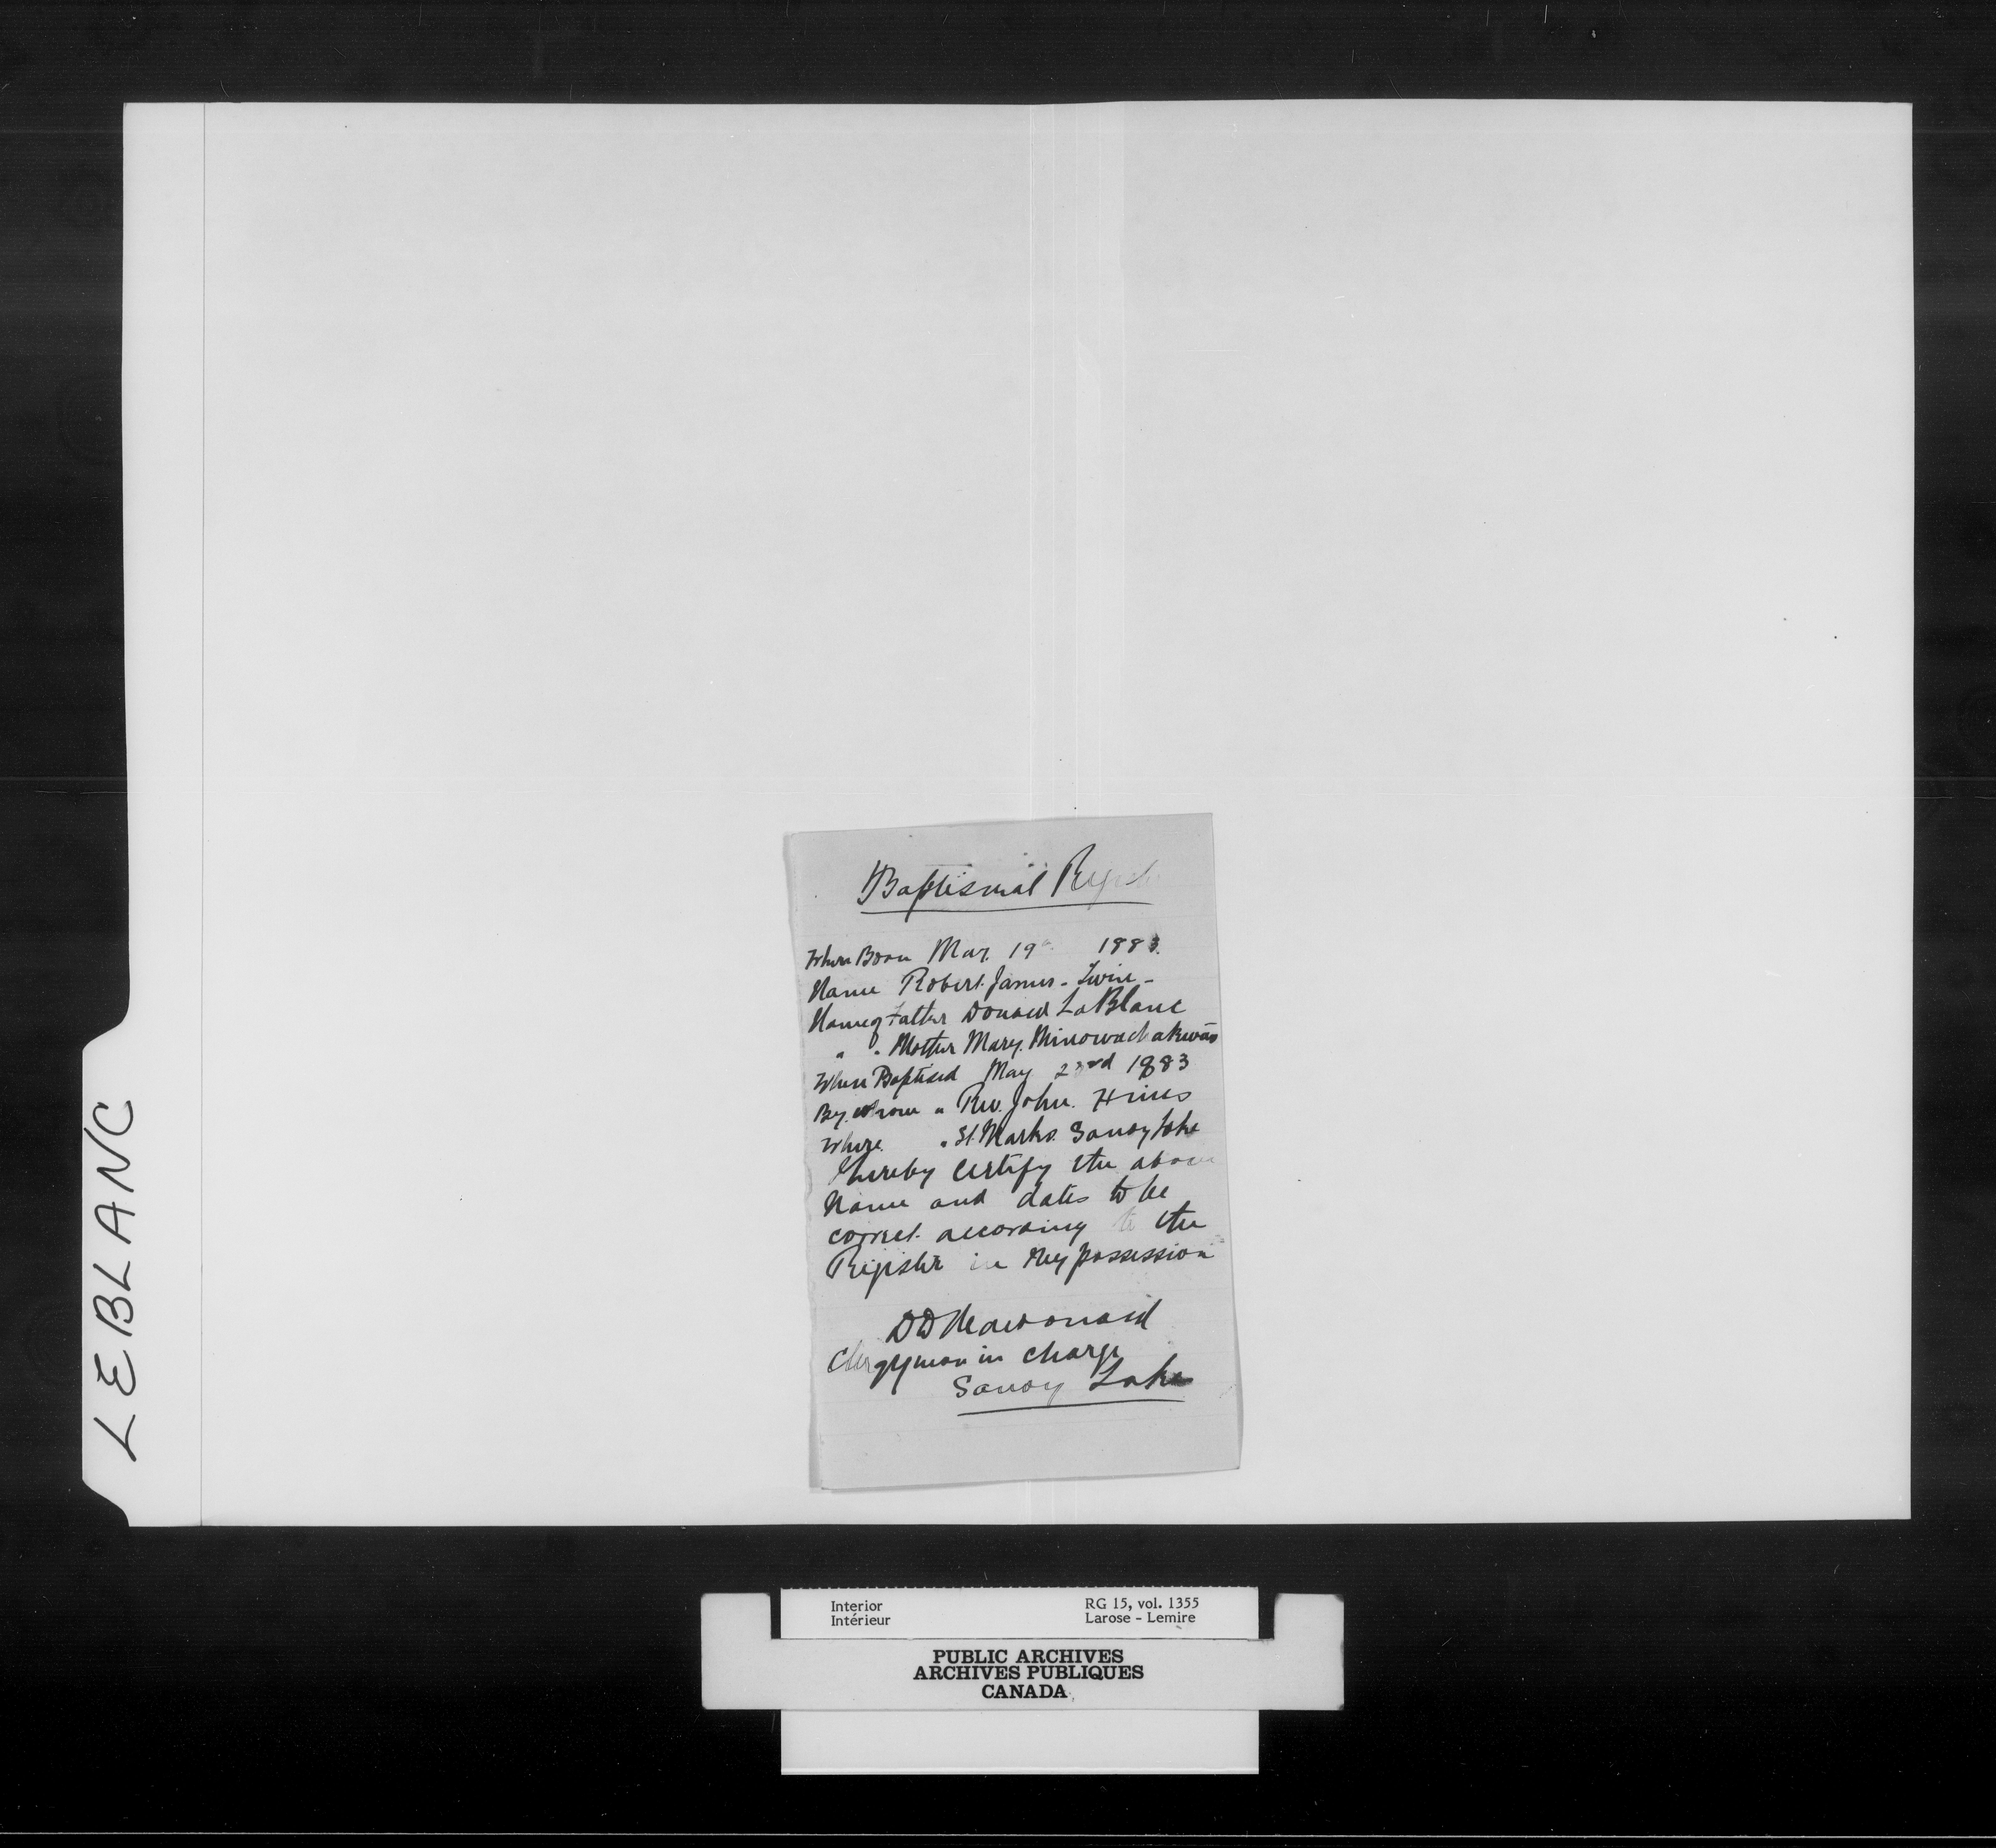 LEBLANC
Baptismal Register
When Born Mar. 19th 1883.
Name Robert James - Twin -
Name of Father Donald LaBlanc
" " Mother Mary. Minowachakwas
When Baptised May 23rd 1883
By Whom " Rev. John. Hines
Where. " St. Marks. Sandy Lake
I hereby Certify the above
Name and dates to be
correct. according to the
Register in My possession
DD Macdonald
Clergyman in charge
Sandy Lake
Interior RG 15, vol. 1355
Intérieur Larose - Lemire
PUBLIC ARCHIVES
ARCHIVES PUBLIQUES
CANADA